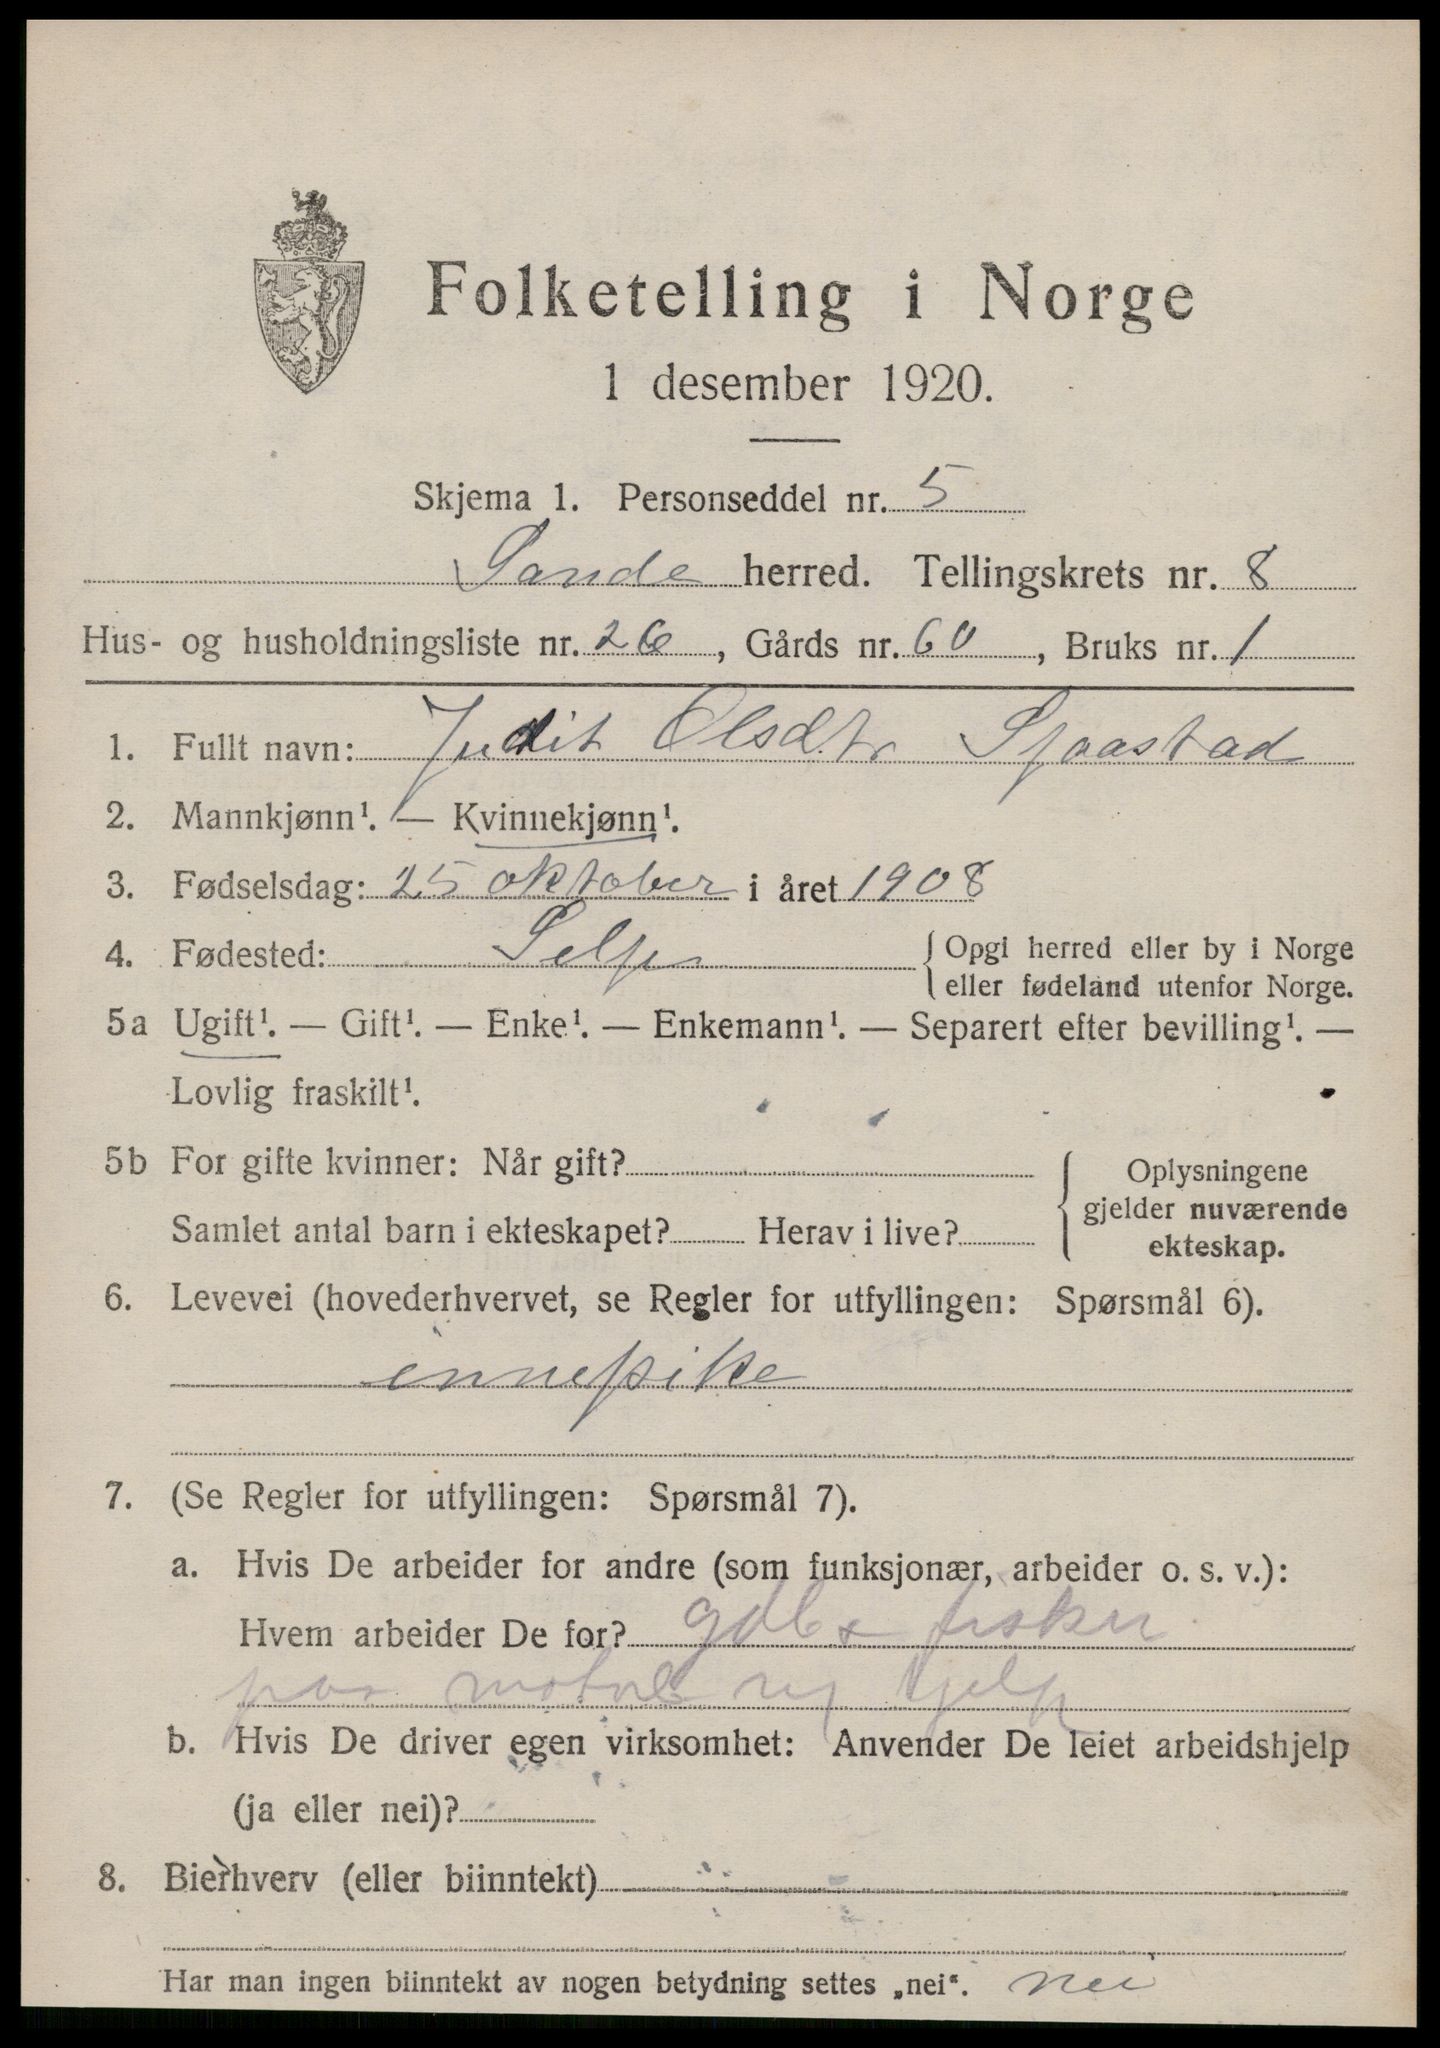 Folketelling i Norge
1 desember 1920.
Skjema 1. Personseddel nr. 5
Sande herred. Tellingskrets nr. 8
Hus- og husholdningsliste nr. 26, Gårds nr. 60, Bruks nr. 1
1. Fullt navn: Judit Olsdtr
2. Mannkjønn¹. — Kvinnekjønn¹.
3. Fødselsdag: 25 oktober i året 1908
4. Fødested: Selje { Opgi herred eller by i Norge
eller fødeland utenfor Norge.
5a Ugift¹. — Gift¹. — Enke¹. — Enkemann¹. — Separert efter bevilling¹. —
Lovlig fraskilt¹.
5b For gifte kvinner: Når gift?
Samlet antal barn i ekteskapet? Herav i live?
Oplysningene
gjelder nuværende
ekteskap.
6. Levevei (hovederhvervet, se Regler for utfyllingen: Spørsmål 6).
innepike
7. (Se Regler for utfyllingen: Spørsmål 7).
a. Hvis De arbeider for andre (som funksjonær, arbeider o. s. v.):
Hvem arbeider De for? gdbr fisker
paa
b. Hvis De driver egen virksomhet: Anvender De leiet arbeidshjelp
(ja eller nei)?
8. Bierhverv (eller biinntekt)
Har man ingen biinntekt av nogen betydning settes „nei“. nei